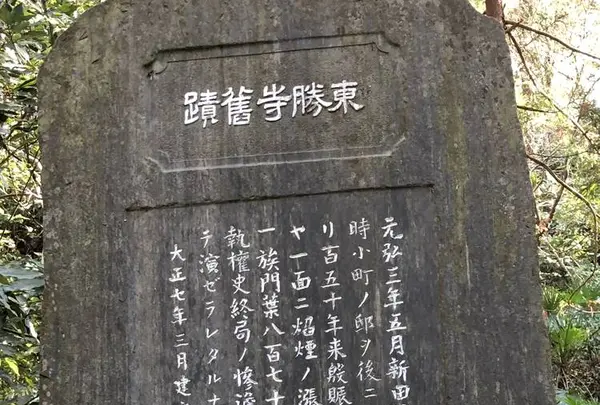 東勝寺舊蹟
元弘三年五月新田
時小町ノ邸ヲ後ニ
リ百五十年来殷賑
ヤ一面ニ焰煙ノ漲
一族門葉八百七十
執權史終局ノ惨澹
テ演ゼラレタルナ
大正七年三月建